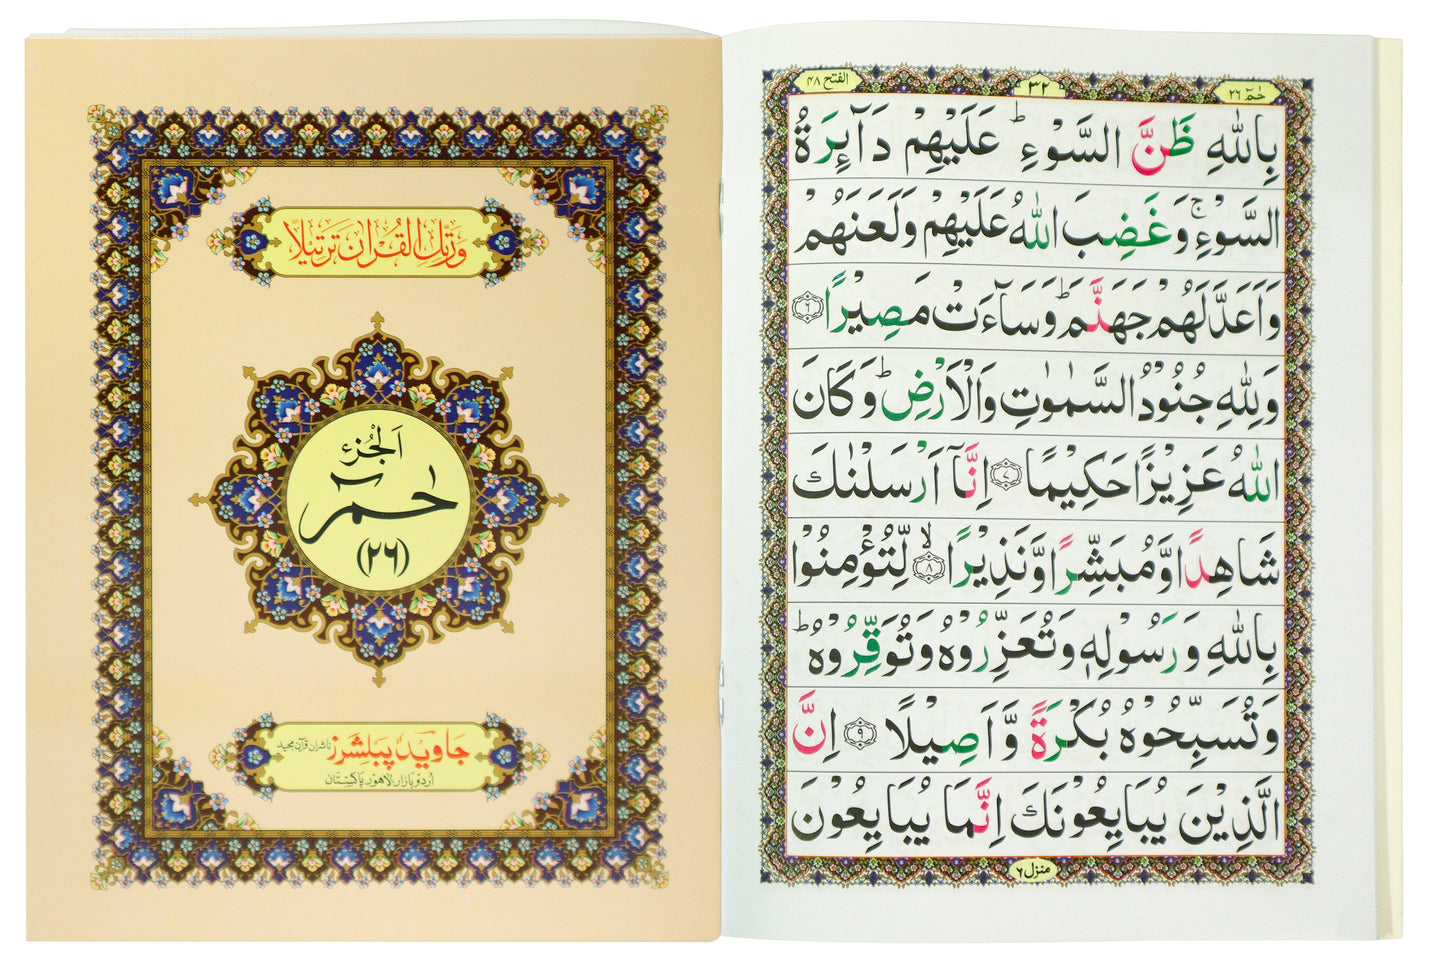 وَرَتِّلِ الْقُرْاٰنَ تَرْتِيْلًا
اَلْجُزْءُ
حٰمٓ
(۲۶)
جاوید پبلشرز ناشران قرآن مجید
اُردو بازار لاہور پاکستان
حٰمٓ ۲۶
۳۲
الفتح ۴۸
بِاللّٰهِ ظَنَّ السَّوْءِ ؕ عَلَيْهِمْ دَآئِرَةُ
السَّوْءِ ۚ وَغَضِبَ اللّٰهُ عَلَيْهِمْ وَلَعَنَهُمْ
وَاَعَدَّ لَهُمْ جَهَنَّمَ ؕ وَسَآءَتْ مَصِيْرًا ۝۶
وَلِلّٰهِ جُنُوْدُ السَّمٰوٰتِ وَالْاَرْضِ ؕ وَكَانَ
اللّٰهُ عَزِيْزًا حَكِيْمًا ۝۷ اِنَّاۤ اَرْسَلْنٰكَ
شَاهِدًا وَّمُبَشِّرًا وَّنَذِيْرًا ۝۸ۙ لِّتُؤْمِنُوْا
بِاللّٰهِ وَرَسُوْلِهٖ وَتُعَزِّرُوْهُ وَتُوَقِّرُوْهُ ؕ
وَتُسَبِّحُوْهُ بُكْرَةً وَّاَصِيْلًا ۝۹ اِنَّ
الَّذِيْنَ يُبَايِعُوْنَكَ اِنَّمَا يُبَايِعُوْنَ
منزل ۶